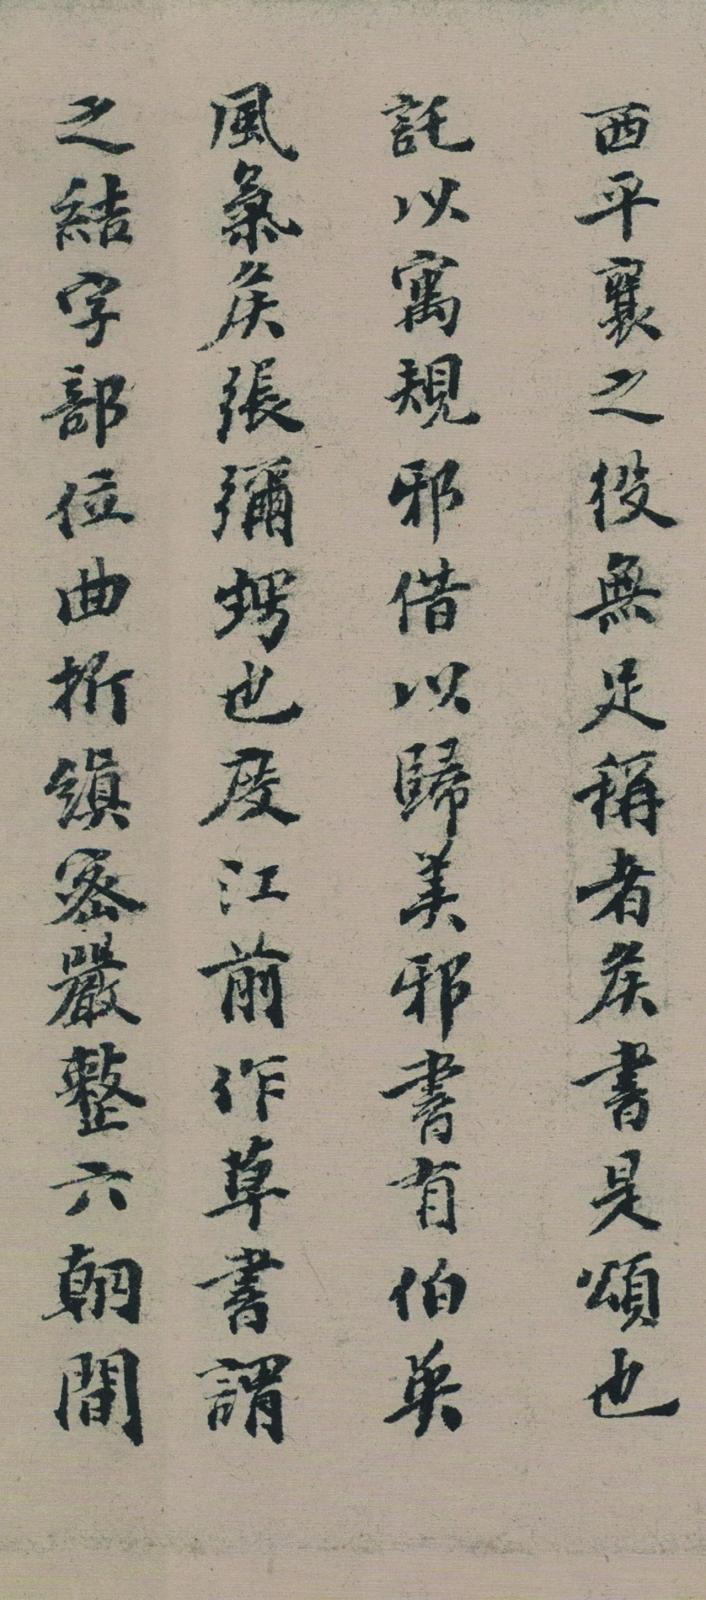 西平襄之役無足稱者矦書是頌也
託以寓規邪借以歸美邪書有伯英
風氣矦張彌愕也度江前作草書謂
之結字部位曲折縝密嚴整六朝間